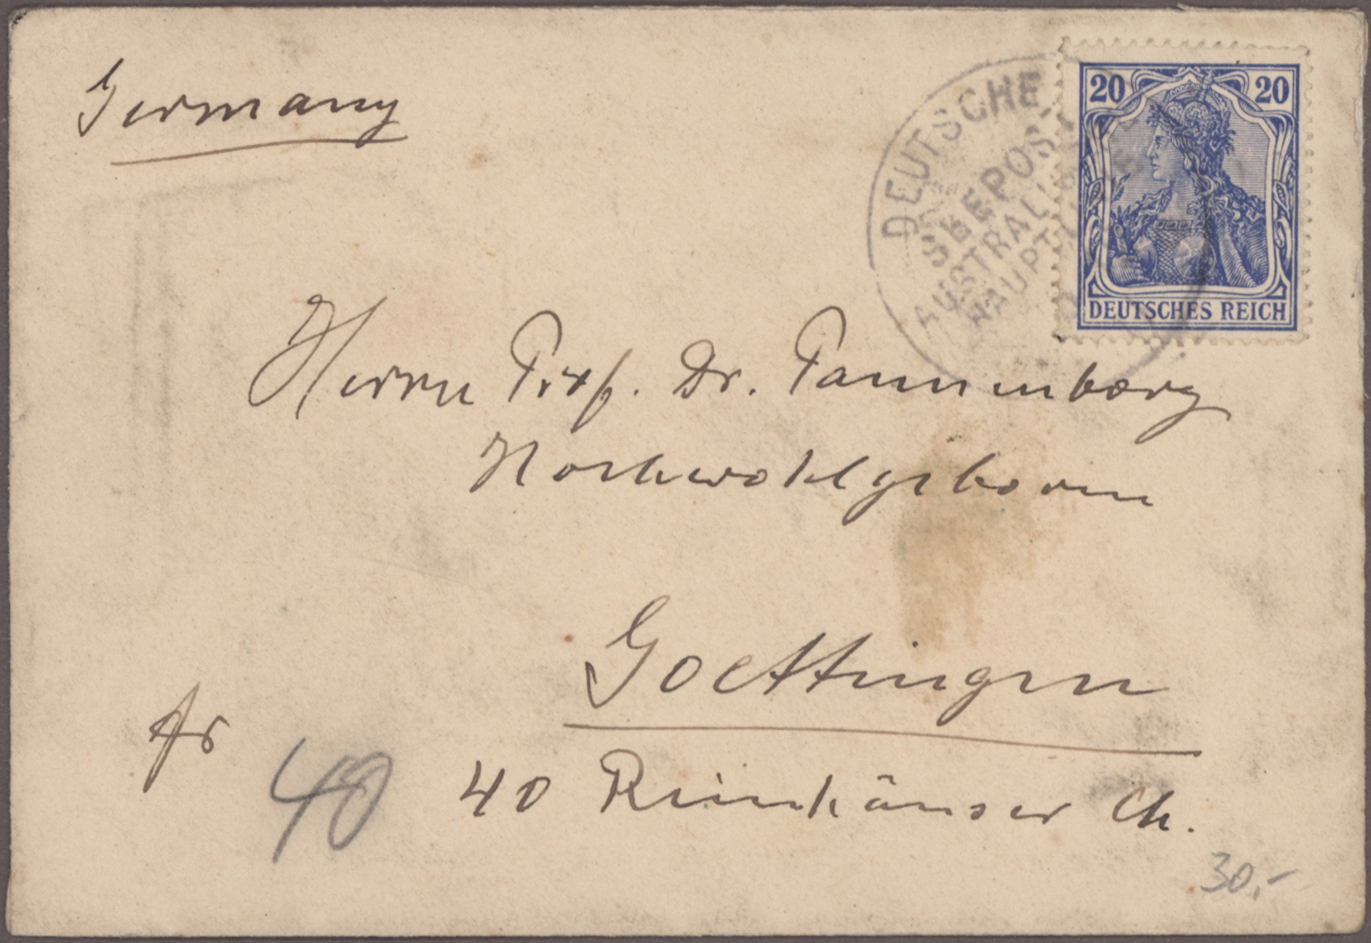 Germany
DEUTSCHE
SEEPOST
AUSTRALI
HAUPT
20 20
DEUTSCHES REICH
Herrn Prof. Dr. Tannenberg
Hochwohlgeboren
Goettingen
40 Reinhäuser Ch.
40
30,-